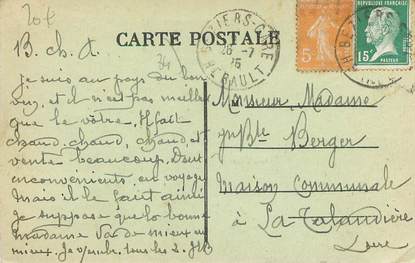 20f
B. ch. A.
CARTE POSTALE
BEZIERS-GARE
26 -7
HERAULT
5
REPUBLIQUE FRANÇAISE
15c
PASTEUR
34
Je suis au pays du bon
vin, et il n'est pas meilleur
que le vôtre. Il fait
chaud, chaud, chaud, et
vente beaucoup. Deux
inconvenients en voyage
Mais il le faut ainsi
je suppose que la bonne
madame va de mieux en
mieux. Je v/embr. tous les 2.
Monsieur, Madame
Bte Berger
Maison Communale
à La Talaudière
Loire